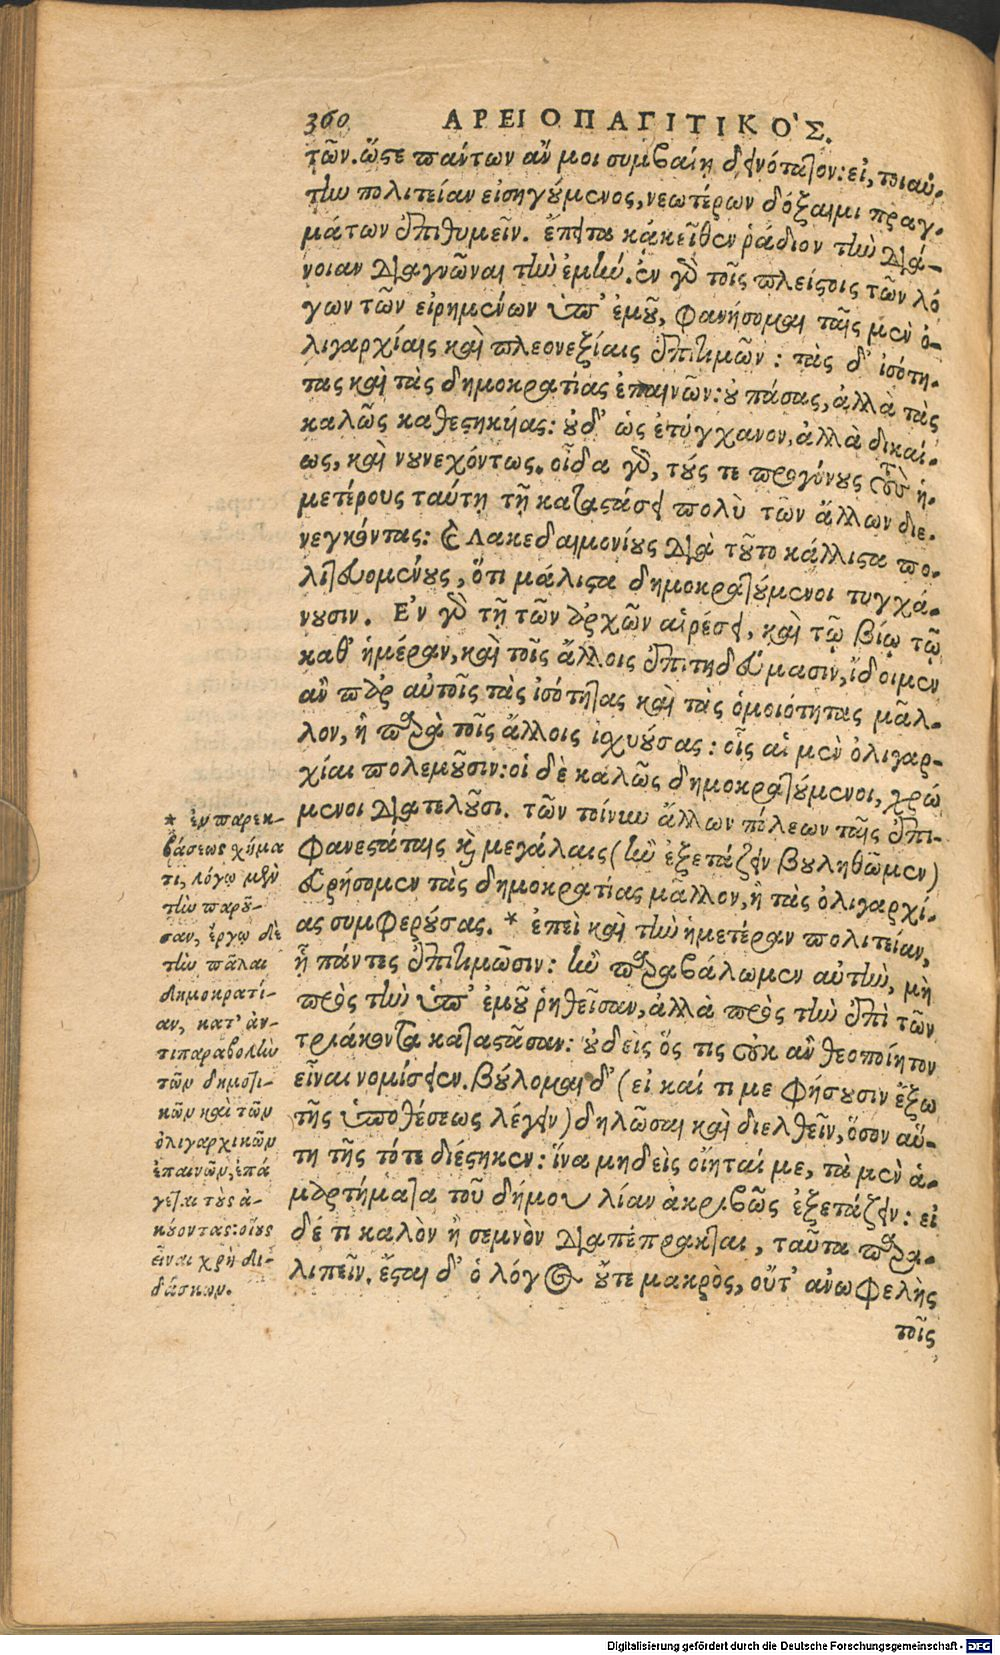 360 ΑΡΕΙΟΠΑΓΙΤΙΚΟ'Σ.
τῶν. ὥστε πάντων ἄν μοι συμβαίη δεινότατον: εἰ, τοιαύ-
την πολιτείαν εἰσηγούμενος, νεωτέρων δόξαιμι πραγ-
μάτων ἐπιθυμεῖν. ἔπειτα κἀκεῖθεν ῥάδιον τὴν διά-
νοιαν διαγνῶναι τὴν ἐμήν. ἐν γὰρ τοῖς πλείστοις τῶν λό
γων τῶν εἰρημένων ὑπ' ἐμοῦ, φανήσομαι ταῖς μὲν ὀ-
λιγαρχίαις καὶ πλεονεξίαις ἐπιτιμῶν: τὰς δ' ἰσότη-
τας καὶ τὰς δημοκρατίας ἐπαινῶν: οὐ πάσας, ἀλλὰ τὰς
καλῶς καθεστηκυίας: οὐδ' ὡς ἐτύγχανον, ἀλλὰ δικαί-
ως, καὶ νουνεχόντως. οἶδα γὰρ, τούς τε προγόνους τοὺς ἡ-
μετέρους ταύτῃ τῇ καταστάσει πολὺ τῶν ἄλλων διε-
νεγκόντας: καὶ Λακεδαιμονίους διὰ τοῦτο κάλλιστα πο-
λιτευομένους, ὅτι μάλιστα δημοκρατούμενοι τυγχά-
νουσιν. Ἐν γὰρ τῇ τῶν ἀρχῶν αἱρέσει, καὶ τῷ βίῳ τῷ
καθ' ἡμέραν, καὶ τοῖς ἄλλοις ἐπιτηδεύμασιν, ἴδοιμεν
ἂν παρ' αὐτοῖς τὰς ἰσότητας καὶ τὰς ὁμοιότητας μᾶλ-
λον, ἢ παρὰ τοῖς ἄλλοις ἰχυούσας: οἷς αἱ μὲν ὀλιγαρ-
χίαι πολεμοῦσιν: οἱ δὲ καλῶς δημοκρατούμενοι, χρώ
μενοι διατελοῦσι. τῶν τοίνυν ἄλλων πόλεων ταῖς ἐπι-
φανεστάταις καὶ μεγάλαις (ἢν ἐξετάζειν βουληθῶμεν)
εὑρήσομεν τὰς δημοκρατίας μᾶλλον, ἢ τὰς ὀλιγαρχί-
ας συμφερούσας. * ἐπεὶ καὶ τὴν ἡμετέραν πολιτείαν,
ᾗ πάντες ἐπιτιμῶσιν: ἢν παραβάλωμεν αὐτὴν, μὴ
πρὸς τὴν ὑπ' ἐμοῦ ῥηθεῖσαν, ἀλλὰ πρὸς τὴν ἐπὶ τῶν
τριάκοντα καταστᾶσαν: οὐδεὶς ὅς τις οὐκ ἂν θεοποίητον
εἶναι νομίσειεν. βούλομαι δ' (εἰ καί τι με φήσουσιν ἔξω
τῆς ὑποθέσεως λέγειν) δηλῶσαι καὶ διελθεῖν, ὅσον αὕ-
τη τῆς τότε διέστηκεν: ἵνα μηδεὶς οἴηταί με, τὰ μὲν ἁ-
μαρτήματα τοῦ δήμου λίαν ἀκριβῶς ἐξετάζειν: εἰ
δέ τι καλὸν ἢ σεμνὸν διαπέπρακται, ταῦτα παρα-
λιπεῖν. ἔσται δ' ὁ λόγος οὔτε μακρὸς, οὔτ' ἀνωφελὴς
τοῖς
* ἐν παρεκ-
βάσεως χήμα
τι, λόγῳ μὲν
τὴν παροῦ-
σαν, ἔργῳ δὲ
τὴν πάλαι
δημοκρατί-
αν, κατ' ἀν-
τιπαραβολὴν
τῶν δημοτι-
κῶν καὶ τῶν
ὀλιγαρχικῶν
ἐπαινῶν, ἐπά
γεται τοὺς ἀ-
κούοντας: οἵους
εἶναι χρὴ δι-
δάσκων.
Digitalisierung gefördert durch die Deutsche Forschungsgemeinschaft - DFG